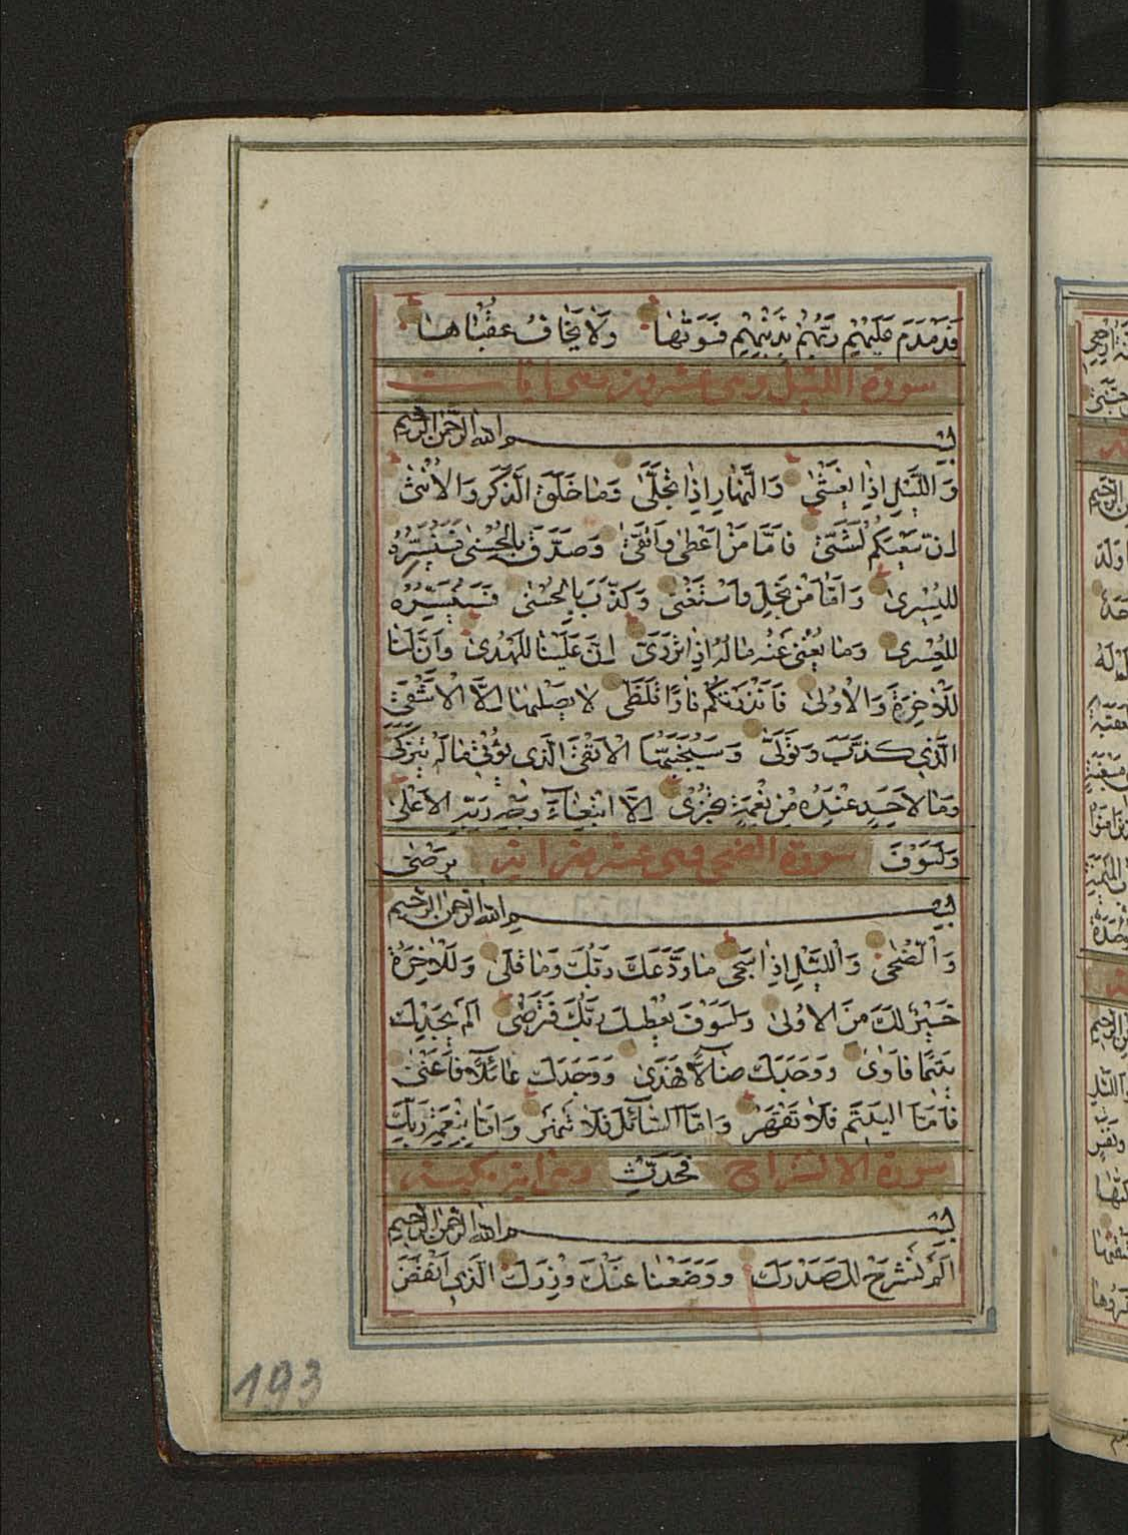 فَدَمْدَمَ عَلَيْهِمْ رَبُّهُمْ بِذَنْبِهِمْ فَسَوّٰيهَا وَلَا يَخَافُ عُقْبٰاهَا
سورة الليل وهى عشرون ايات
بسم الله الرحمن الرحيم
وَالَّيْلِ اِذَا يَغْشٰى وَالنَّهَارِ اِذَا تَجَلّٰى وَمَا خَلَقَ الذَّكَرَ وَالْاُنْثٰى
اِنَّ سَعْيَكُمْ لَشَتّٰى فَاَمَّا مَنْ اَعْطٰى وَاتَّقٰى وَصَدَّقَ بِالْحُسْنٰى فَسَنُيَسِّرُهُ
لِلْيُسْرٰى وَاَمَّا مَنْ بَخِلَ وَاسْتَغْنٰى وَكَذَّبَ بِالْحُسْنٰى فَسَنُيَسِّرُهُ
لِلْعُسْرٰى وَمَا يُغْنِى عَنْهُ مَالُهُ اِذَا تَرَدّٰى اِنَّ عَلَيْنَا لَلْهُدٰى وَاِنَّ لَنَا
لَلْاٰخِرَةَ وَالْاُولٰى فَاَنْذَرْتُكُمْ نَارًا تَلَظّٰى لَا يَصْلٰيهَا اِلَّا الْاَشْقٰى
الَّذِى كَذَّبَ وَتَوَلّٰى وَسَيُجَنَّبُهَا الْاَتْقٰى الَّذِى يُؤْتِى مَالَهُ يَتَزَكّٰى
وَمَا لِاَحَدٍ عِنْدَهُ مِنْ نِعْمَةٍ تُجْزٰى اِلَّا ابْتِغَاءَ وَجْهِ رَبِّهِ الْاَعْلٰى
وَلَسَوْفَ سورة الضحى وهى عشر اية يَرْضٰى
بسم الله الرحمن الرحيم
وَالضُّحٰى وَالَّيْلِ اِذَا سَجٰى مَا وَدَّعَكَ رَبُّكَ وَمَا قَلٰى وَلَلْاٰخِرَةُ
خَيْرٌ لَكَ مِنَ الْاُولٰى وَلَسَوْفَ يُعْطِيكَ رَبُّكَ فَتَرْضٰى اَلَمْ يَجِدْكَ
يَتِيمًا فَاٰوٰى وَوَجَدَكَ ضَالًّا فَهَدٰى وَوَجَدَكَ عَائِلًا فَاَغْنٰى
فَاَمَّا الْيَتِيمَ فَلَا تَقْهَرْ وَاَمَّا السَّائِلَ فَلَا تَنْهَرْ وَاَمَّا بِنِعْمَةِ رَبِّكَ
سورة الانشراح فَحَدِّثْ اية مكية
بسم الله الرحمن الرحيم
اَلَمْ نَشْرَحْ لَكَ صَدْرَكَ وَوَضَعْنَا عَنْكَ وِزْرَكَ الَّذِى اَنْقَضَ
193